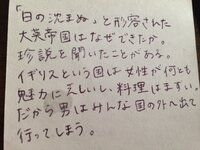 「日の沈まぬ」と形容された
大英帝国はなぜできたか。
珍説を聞いたことがある。
イギリスという国は女性が何とも
魅力に乏しいし、料理はまずい。
だから男はみんな国の外へ出て
行ってしまう。